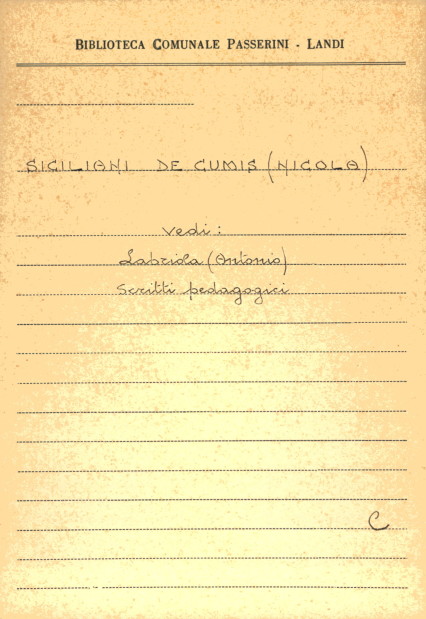 BIBLIOTECA COMUNALE PASSERINI - LANDI
SICILIANI DE CUMIS (NICOLA)
vedi:
Labriola (Antonio)
Scritti pedagogici
C